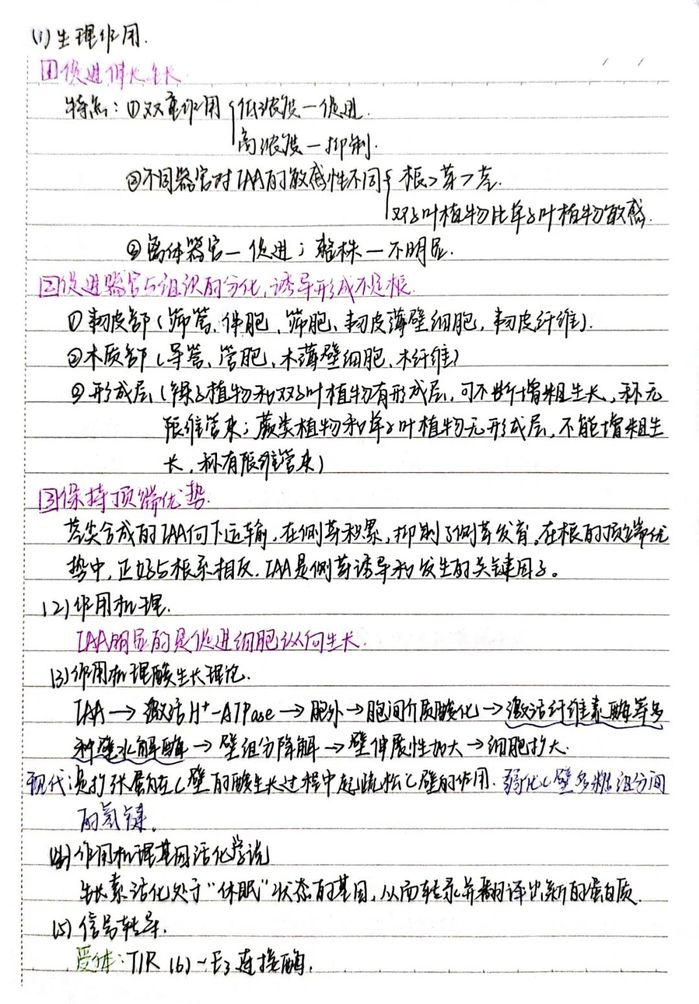 (1)生理作用.
①促进伸长生长
特点:①双重作用{低浓度—促进.
高浓度—抑制.
②不同器官对IAA的敏感性不同{根>芽>茎.
双子叶植物比单子叶植物敏感.
③离体器官—促进;整株—不明显.
②促进器官与组织的分化,诱导形成不定根.
①韧皮部(筛管、伴胞、筛胞、韧皮薄壁细胞,韧皮纤维).
②木质部(导管、管胞、木薄壁细胞、木纤维)
③形成层(裸子植物和双子叶植物有形成层,可不断增粗生长,称无
限维管束;蕨类植物和单子叶植物无形成层,不能增粗生
长,称有限维管束)
③保持顶端优势.
茎尖合成的IAA向下运输,在侧芽积累,抑制了侧芽发育.在根的顶端优
势中,正好与根系相反.IAA是侧芽诱导和发生的关键因子。
(2)作用机理.
IAA明显的是促进细胞纵向生长.
(3)作用机理酸生长理论.
IAA→激活H⁺-ATPase→胞外→胞间介质酸化→激活纤维素酶等多
种壁水解酶→壁组分降解→壁伸展性加大→细胞扩大.
现代:是扩张蛋白在C壁的酸生长过程中起疏松C壁的作用.弱化C壁多糖组分间
的氢键。
(4)作用机理基因活化学说
生长素活化处于"休眠"状态的基因,从而转录并翻译出新的蛋白质.
(5)信号转导.
受体:TIR (6)-E₃连接酶.